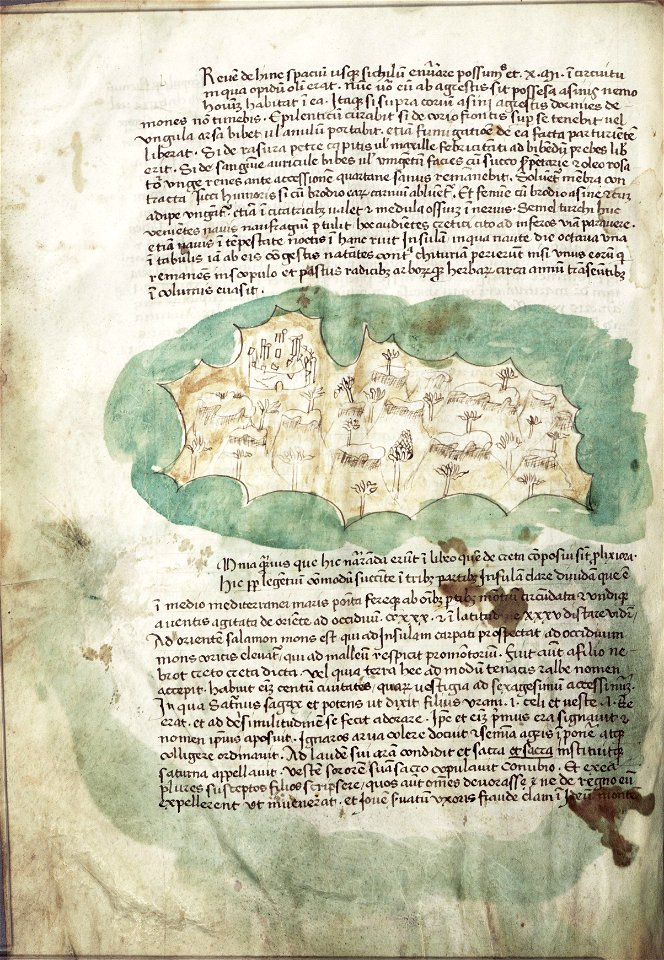 Reuē de hinc spaciū usq; sichilū enūare possum⁹ et . x . m̄ . ī circuitu
in qua opidū olī erat . Nūc uō cū ab agrestis sit possesa asinis nemo
hominū habitat ī ea . Itaq; si supra coriū asini agrestis dormies de-
mones nō timebis . Epilenticū curabit si de corio frontis sup se tenebit uel
ungula arsa bibet ul' anulū portabit . etiā fumigatiōe de ea facta parturiētē
liberat . Si de rasura petre capitis ul' maxille febricitāti ad bibēdū prebes lib
erit . Si de sanguine auricule bibes ul' unguētū facies cū succo et oleo rosa
tō unge renes ante accessionē quartane sanus remanebit . Soluet mēbra con
tracta sicci humoris si cū brodio ear carniū abluet . Et femine cū brodio asine
adipe ungāt etiā ī cicatricib; ualet medula ossiū ī neruis . Semel turchi huc
uenietes nauis naufragiū ptulit hoc audietes cretici cito ad inferos uiā parauere .
etiā nauis ī tēpestate noctis ī hanc ruit Insulā in qua naute die octaua una
ī tabulis iā ab eis cōgestis natātes perierūt nisi unus eorū q
remanēs in scopulo et pastus radicib; arborq; herbar circa annū trāseūtib;
ī columis euasit .
Omnia que hic narrāda erūt ī libro que de creta cōposui sūt plixiora .
hic legētiū cōmodū succīte ī trib; partib; Insulā clare diuidam que ē
ī medio mediterranei maris posita fereq; ab oīb; ptib; circūdata undiq;
a uentis agitata de oriēte ad occiduū . ccxxx . et ī latitudīe xxxv distare
Ad orientē salamon mons est qui ad Insulam carpati prospectat ad occiduum
mons coricis eleuat qui ad malleū respicit promōtoriū . Fuit aūt a filio ne-
brot creto creta dicta . Vel quia terra hec ad modū tenacis albe nomen
accepit . habuit eī centū ciuitates quar uestigia ad sexagesimū accessim⁹ .
In qua Saturnus sagax et potens ut dixit filius urani . i . celi et ueste . i .
erat . et ad dei similitudinē se fecit adorare . Ipse et eīz primus era signauit et
nomen ipīus aposuit . Ignaros arua colere docuit et semīa agris ī ponē atq;
colligere ordinauit . Ad laudē sui arā condidit et sacra et sacra instituitq;
saturna appellauit . uestē sororem suā sacro copulauit conubio . Et ex ea
plures susceptos filios scripsere , quos aut omēs deuorasse ne de regno eū
expellerent ut inuenerāt . et Jouē seruatum uxoris fraude clam ī monte